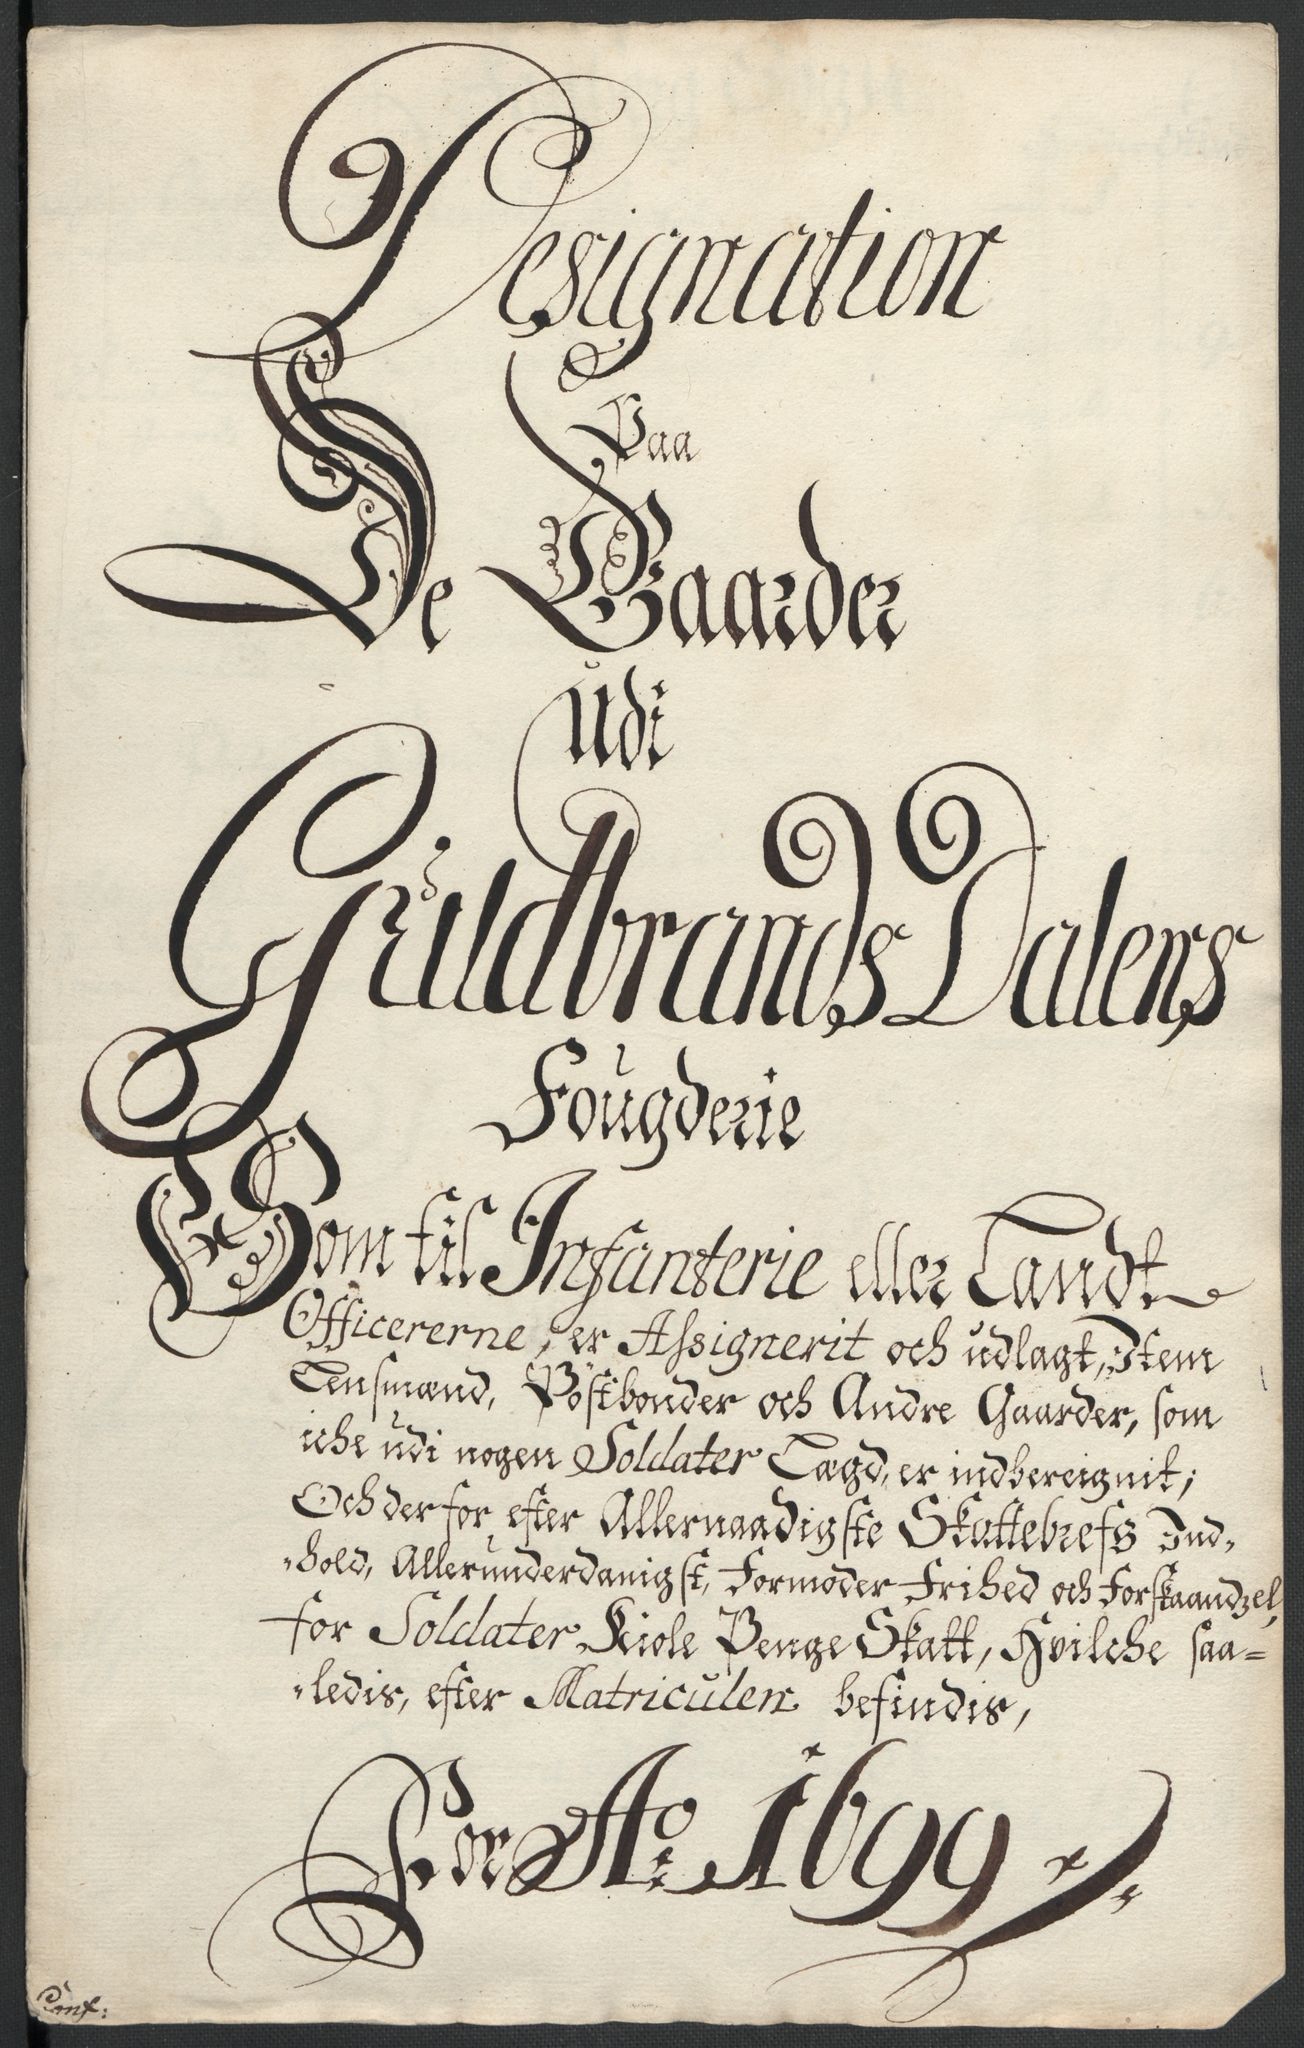 Designation
Paa
De Gaarder
udi
Guldbrands Dalens
Fougderie
Som til Infanterie eller Landt
Officererne, er Assignerit och udlagt, Item
Lensmænd, Postbønder och Andre Gaarder, som
iche udi nogen Soldater Lægd, er indbereignit;
Och derfor efter Allernaadigste Skattebrefs Ind,
hold, Allerunderdanigst, Formoder Frihed och Forskaandzel,
for Soldater Kiole Penge Skatt, Hvilche saa=
ledis, efter Matriculen befindis,
For Ao: 1699